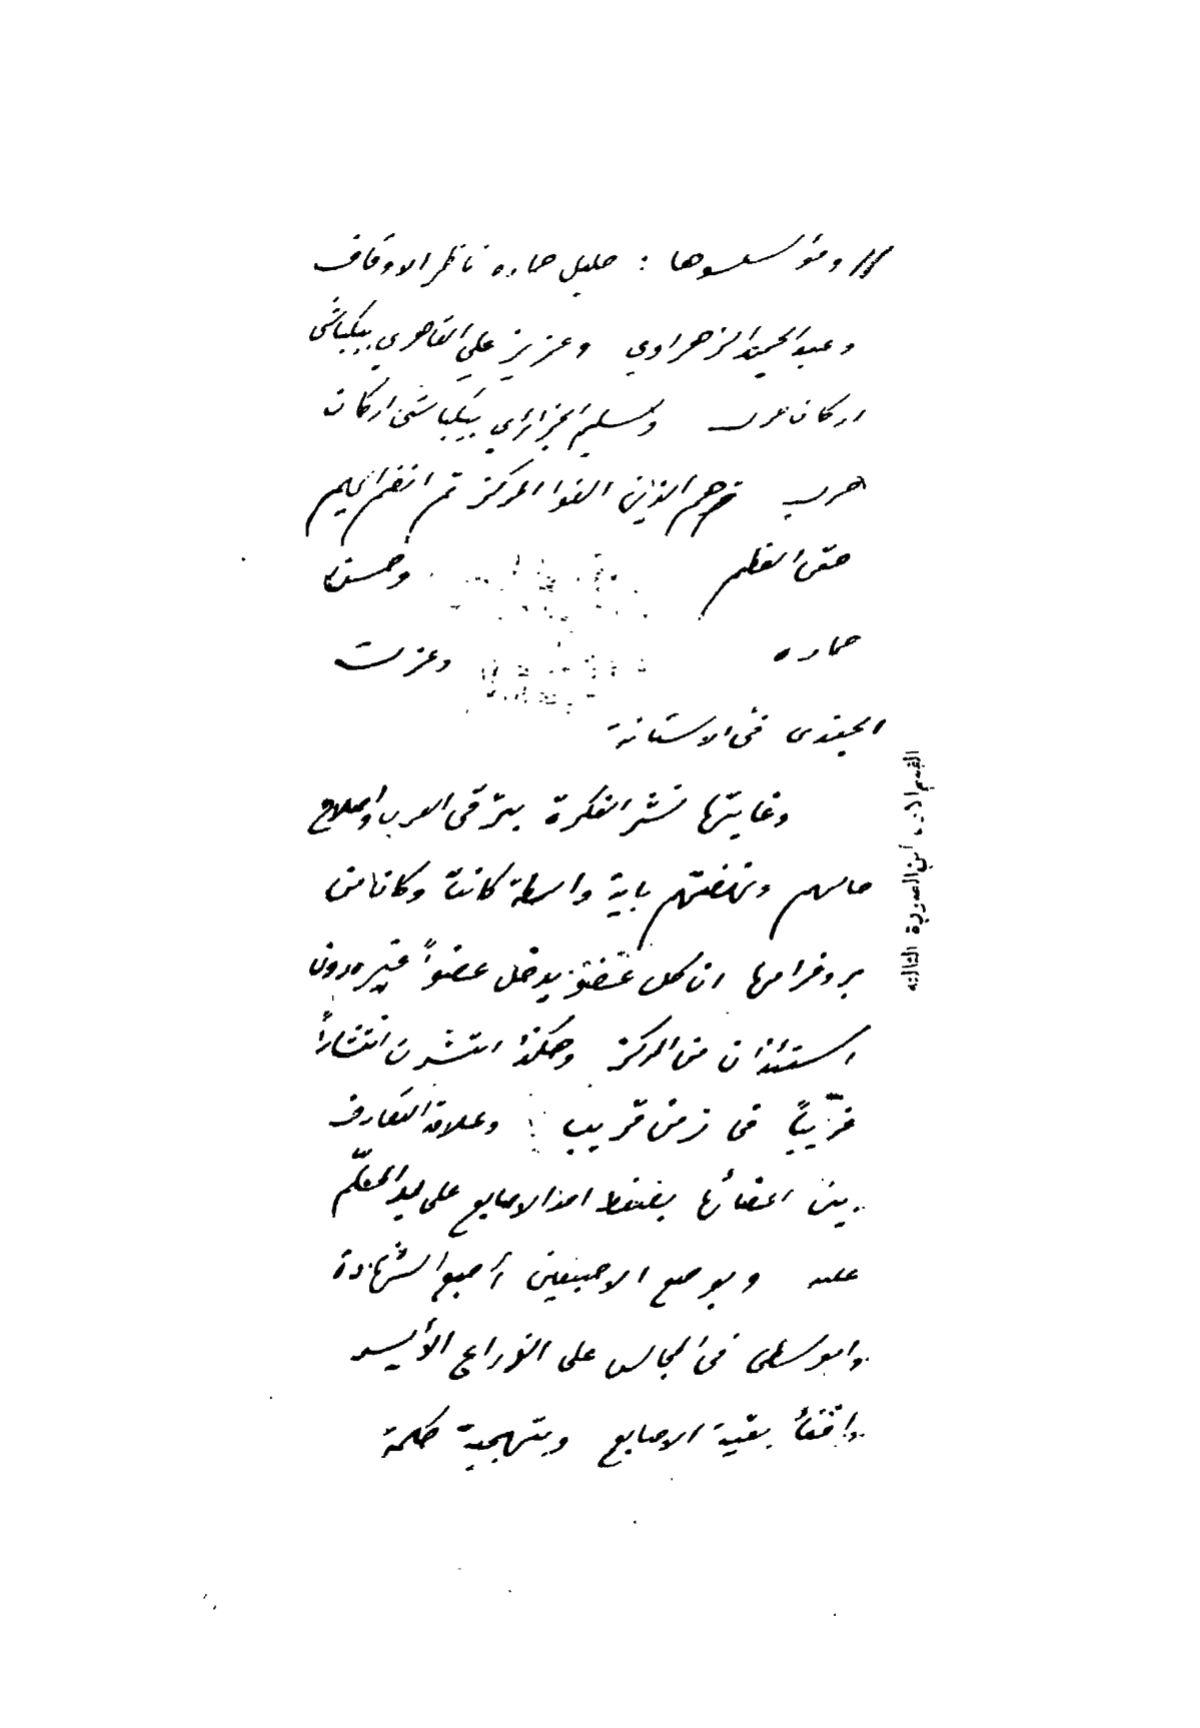 // ومؤسسوها : خليل حماده ناظر الاوقاف
وعبد الحميد الزهراوي وعزيز علي القاهري بيكباشي
اركان حرب وسليم الجزائري بيكباشي اركان
حرب فهم الذين الفوا المركز ثم انضم اليهم
حقي العظم وحسن
حماده وعزت
الجندي في الاستانة
وغايتها نشر الفكرة بترقي العرب واصلاح
حالهم ونهضتهم باية واسطة كانت وكان من
بروغرامها ان كل عضو يدخل عضواً غيره دون
استئذان من المركز وهكذا انتشرت انتشاراً
غريباً في زمن قريب : وعلامة التعارف
بين اعضائها بضغط احد الاصابع على يد المسلّم
عليه وبوضع الاصبعين أصبع الشهادة
والوسطى في المجالس على الذراع الأيسر
واخفاء بقية الاصابع وبتهجية كلمة
القسم من الصورة الثالثة